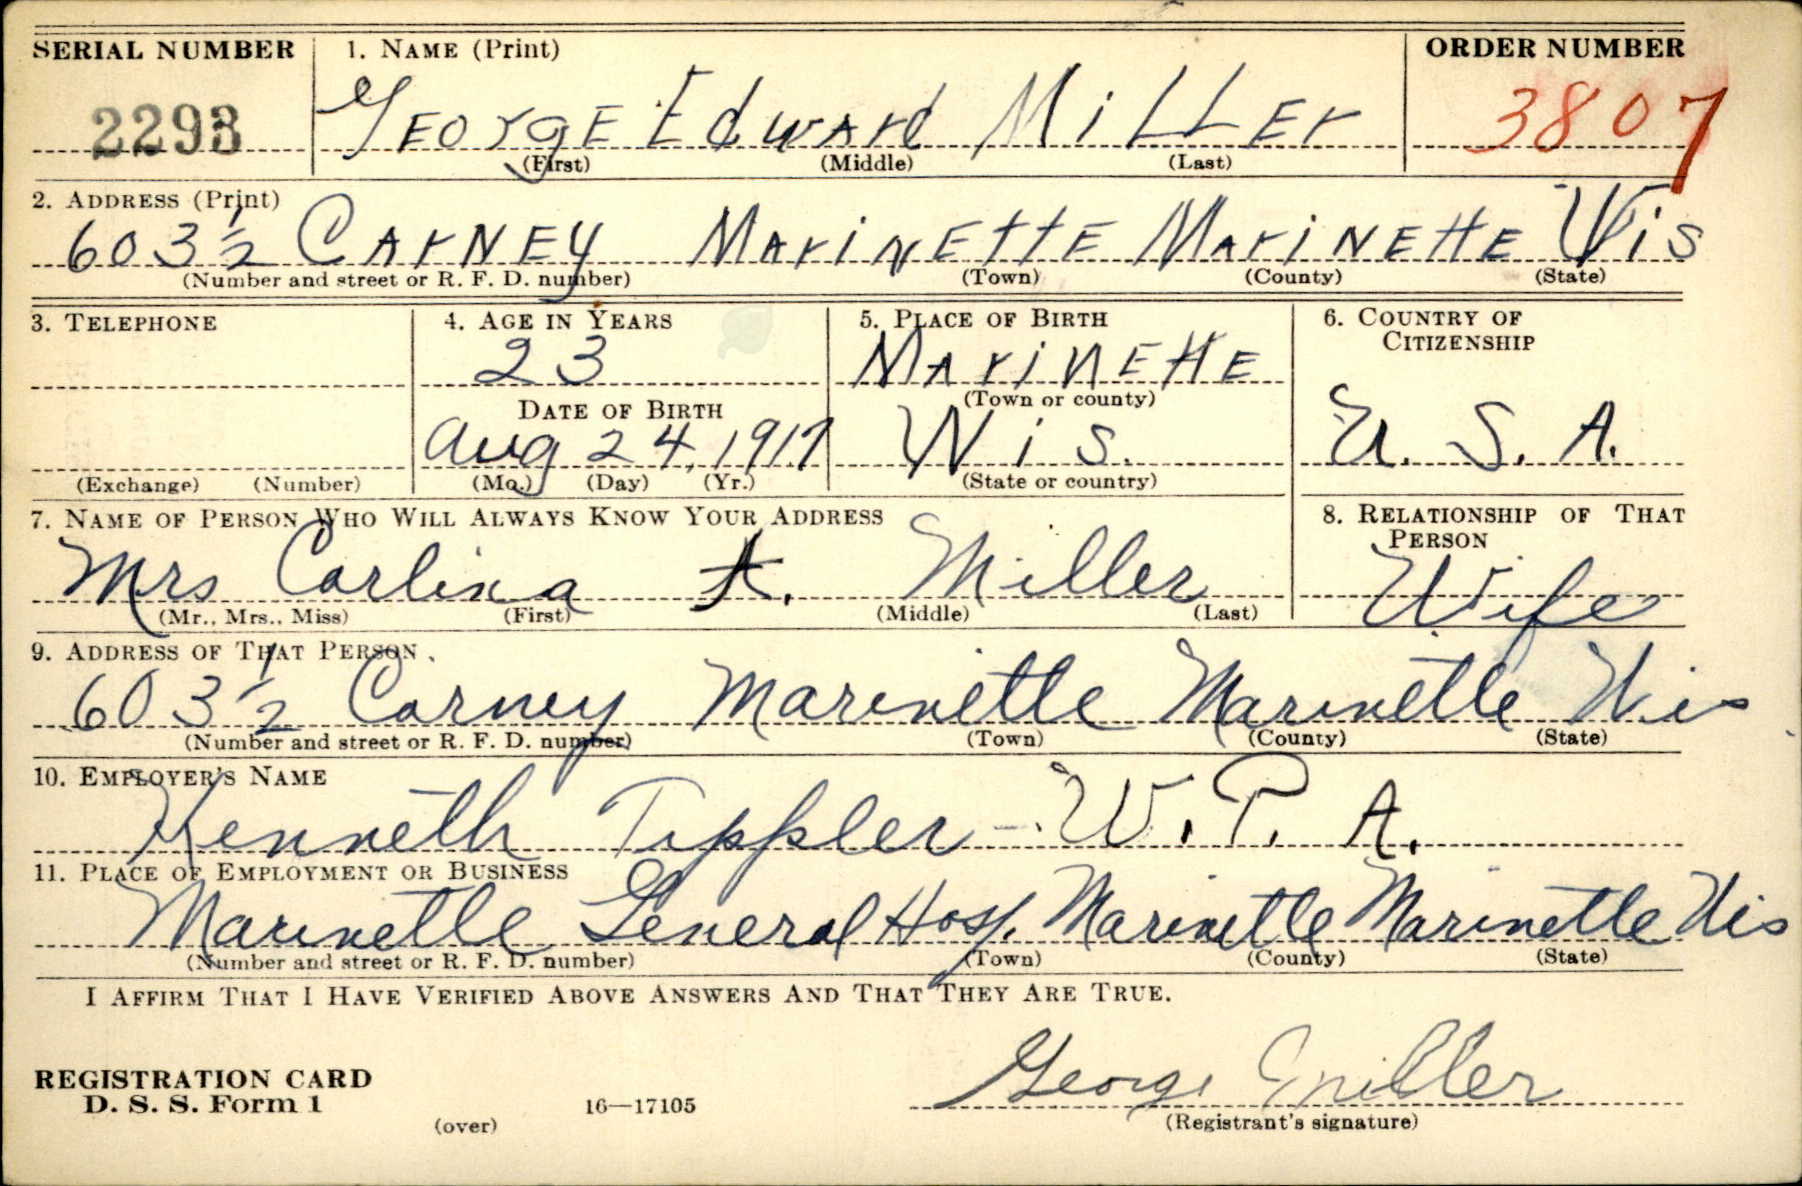 SERIAL NUMBER 1. NAME (Print) ORDER NUMBER
2293 GEORGE Edward MiLLEr 3807
(First) (Middle) (Last)
2. ADDRESS (Print)
603 1/2 CArNEy MariNEttE MariNEttE Wis
(Number and street or R. F. D. number) (Town) (County) (State)
3. TELEPHONE 4. AGE IN YEARS 5. PLACE OF BIRTH 6. COUNTRY OF CITIZENSHIP
23 MariNEttE
DATE OF BIRTH (Town or county)
Aug 24, 1917 Wis. U. S. A.
(Exchange) (Number) (Mo.) (Day) (Yr.) (State or country)
7. NAME OF PERSON WHO WILL ALWAYS KNOW YOUR ADDRESS 8. RELATIONSHIP OF THAT PERSON
Mrs Carlina A. Miller Wife
(Mr., Mrs., Miss) (First) (Middle) (Last)
9. ADDRESS OF THAT PERSON
603 1/2 Carney Marinette Marinette Wis
(Number and street or R. F. D. number) (Town) (County) (State)
10. EMPLOYER'S NAME
Kenneth Tippler - W. P. A.
11. PLACE OF EMPLOYMENT OR BUSINESS
Marinette General Hosp. Marinette Marinette Wis
(Number and street or R. F. D. number) (Town) (County) (State)
I AFFIRM THAT I HAVE VERIFIED ABOVE ANSWERS AND THAT THEY ARE TRUE.
George Miller
REGISTRATION CARD
D. S. S. Form 1 16—17105 (Registrant's signature)
(over)